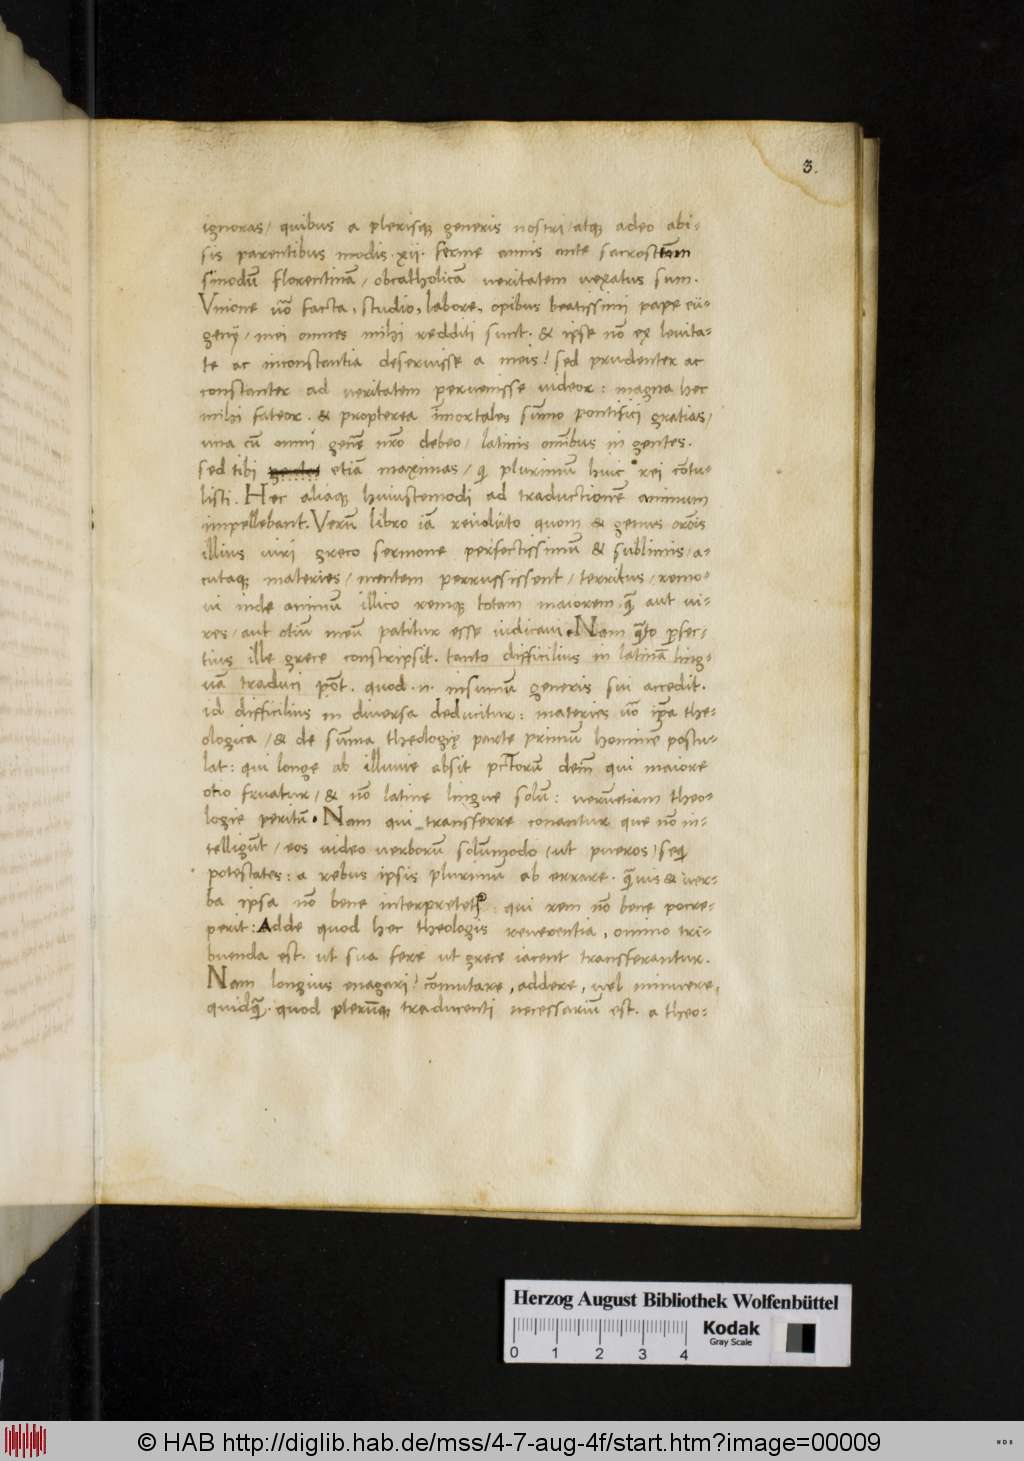 3.
ignoras/ quibus a plerisq; generis nostri/ atq; adeo abi-
sis parentibus modis ·xii· ferme annis ante sacrosctam
sinodū florentinā/ ob catholicā veritatem vexatus sum.
Vnione u̅o facta, studio, labore, opibus beatissimi pape eu-
genij/ mei omnes mihi redditi sunt. & ipse nō ex levita-
te ac inconstantia deseruisse a meis? sed prudenter ac
constanter ad veritatem pervenisse videor: magna hec
mihi fateor. & propterea īmortales sūmo pontifici gratias,
una cū omni genē nr̅o debeo/ latinis omībus in gentes.
sed tibi etiā maximas/ qi plurimū huic rei cōtu-
listi. Hec aliaq; huiuscemodi ad traductionē animum
impellebant. Verū libro iā revoluto quom & genus orōis
illius viri greco sermone perfectissimū & sublimis/ a-
cutaq; materies/ mentem perrussissent/ territus/ remo-
vi inde animū illico remq; totam maiorem, qua̅ aut vi-
res/ aut otiū meū patitur esse iudicavi. Nam qua̅to p̄fec-
tius ille grece constripsit. tanto difficilius in latinā ling-
uā traduci pōt. quod .n. in suum generis sui accedit.
id difficilius in diversa deducitur: materies u̅o ip̄a the-
ologica/ & de sūma theologiȩ parte primū hominē postu-
lat: qui longe ab illuvie absit pctorū dem̄ qui maiore
otio fruatur/ & nō latine lingue solū: verūetiam theo-
logie peritū. Nam qui transferre conantur que nō in-
telligūt/ eos video verborū solūmodo (ut pueros) seq̄
potestates: a rebus ipsis plurimū ab errare. qua̅vis & ver-
ba ipsa nō bene interpretet᷑: qui rem nō bene p̄cre-
perit: Adde quod hec theologis reverentia, omino tri-
buenda est. ut sua fere ut grece iacent transferantur.
Nam longius evagari? cōmutare, addere, vel minuere,
quidqua̅. quod plerūq; traducenti necessariū est. a theo-
Herzog August Bibliothek Wolfenbüttel
0 1 2 3 4
Kodak
Gray Scale
© HAB http://diglib.hab.de/mss/4-7-aug-4f/start.htm?image=00009